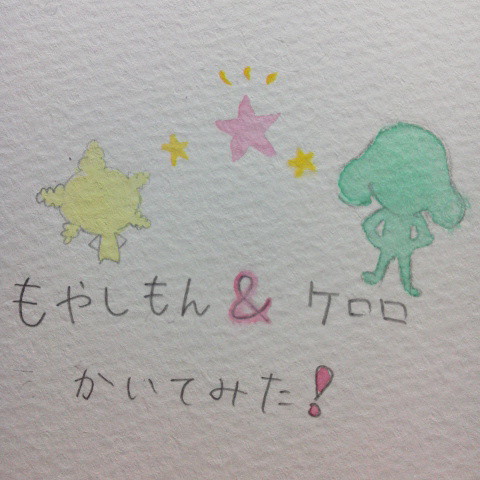 もやしもん & ケロロ
かいてみた!